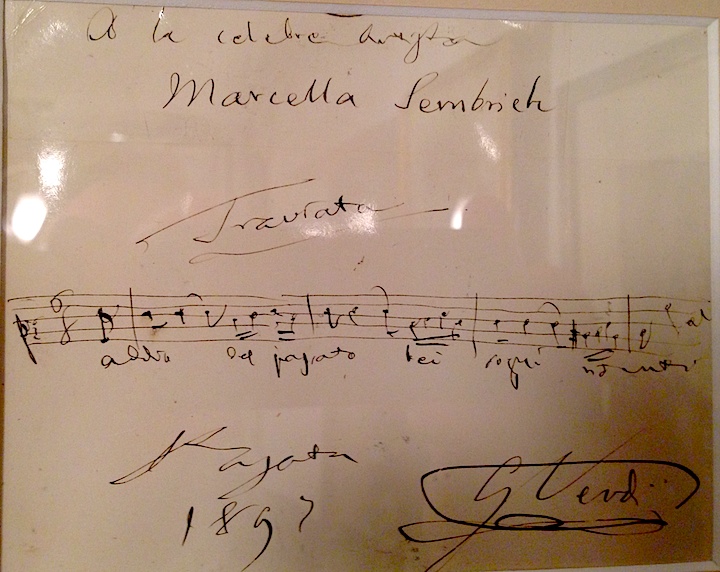 A la celebre Artista
Marcella Sembrich
Traviata
addio del passato bei sogni ridenti
S Agata
1897
G Verdi